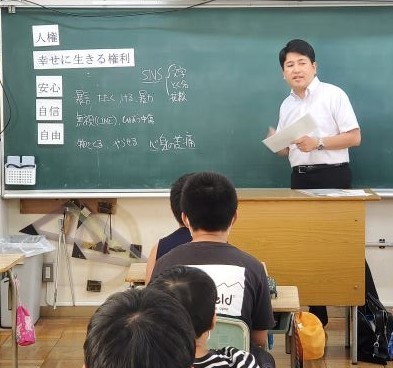 人権
幸せに生きる権利
安心
自信
自由
SNS
文字
暴言 たたく ける 暴力
無視(LINE)
心身の苦痛
eld